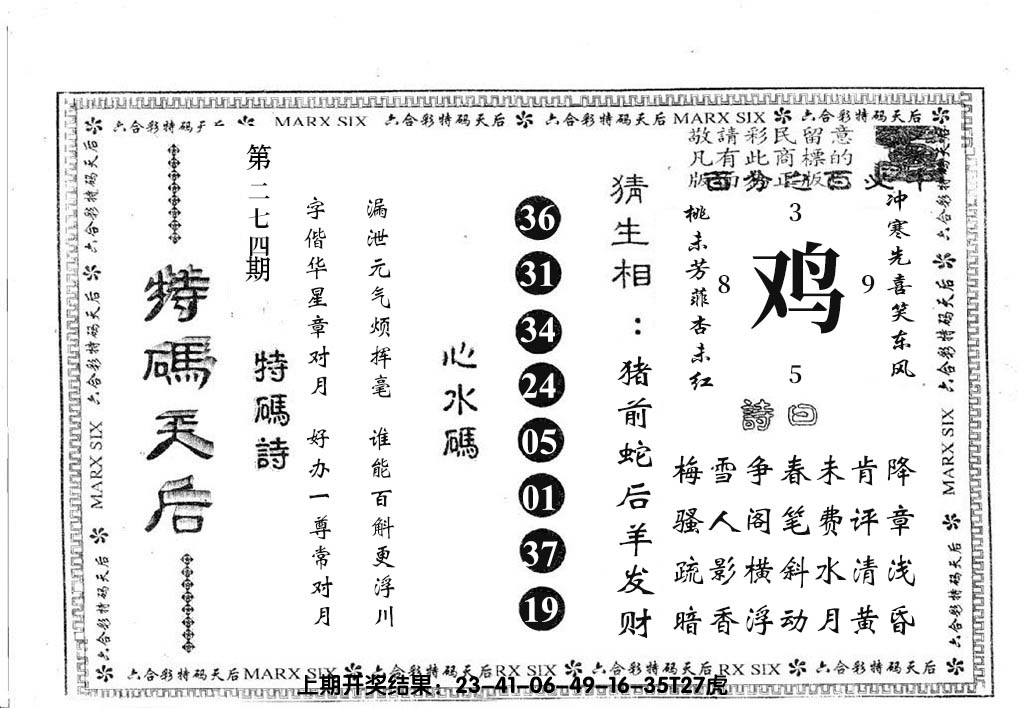 六合彩特码天后 MARX SIX 六合彩特码天后 六合彩特码天后 MARX SIX 六合彩特码天后
敬請彩民留意
凡有此商標的
版面为正版
冲寒先喜笑东风
3
8
鸡
9
5
桃未芳菲杏未红
詩曰
降章浅昏
肯评清黄
未费水月
春笔斜动
争阁横浮
雪人影香
梅骚疏暗
猜生相：猪前蛇后羊发财
36
31
34
24
05
01
37
19
心水碼
漏泄元气烦挥毫 谁能百斛更浮川
字偕华星章对月 好办一尊常对月
特碼詩
第二七四期
特碼天后
六合彩特码天后 六合彩特码天后 MARX SIX 六合彩特码天后
六合彩特码天后 六合彩特码天后 MARX SIX 六合彩特码天后
六合彩特码天后 MARX SIX 六合彩特码天后 RX SIX 六合彩特码天后 RX SIX 六合彩特码天后
上期开奖结果：23-41-06-49-16-35T27虎